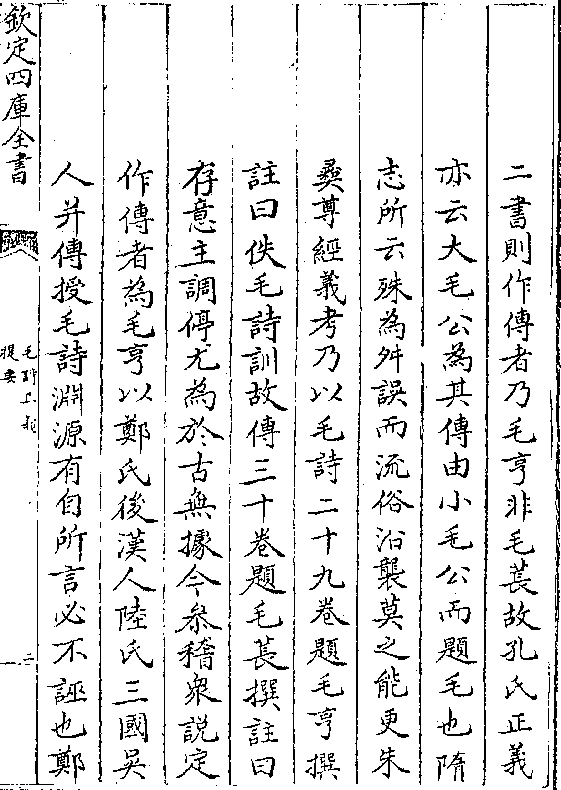 二書則作傳者乃毛亨非毛萇故孔氏正義
亦云大毛公為其傳由小毛公而題毛也隋
志所云殊為舛誤而流俗沿襲莫之能更朱
彝尊經義考乃以毛詩二十九卷題毛亨撰
註曰佚毛詩訓故傳三十卷題毛萇撰註曰
存意主調停尤為於古無據今參稽衆説定
作傳者為毛亨以鄭氏後漢人陸氏三國吳
人并傳授毛詩淵源有自所言必不誣也鄭
欽定四庫全書
毛詩正義
提要
二